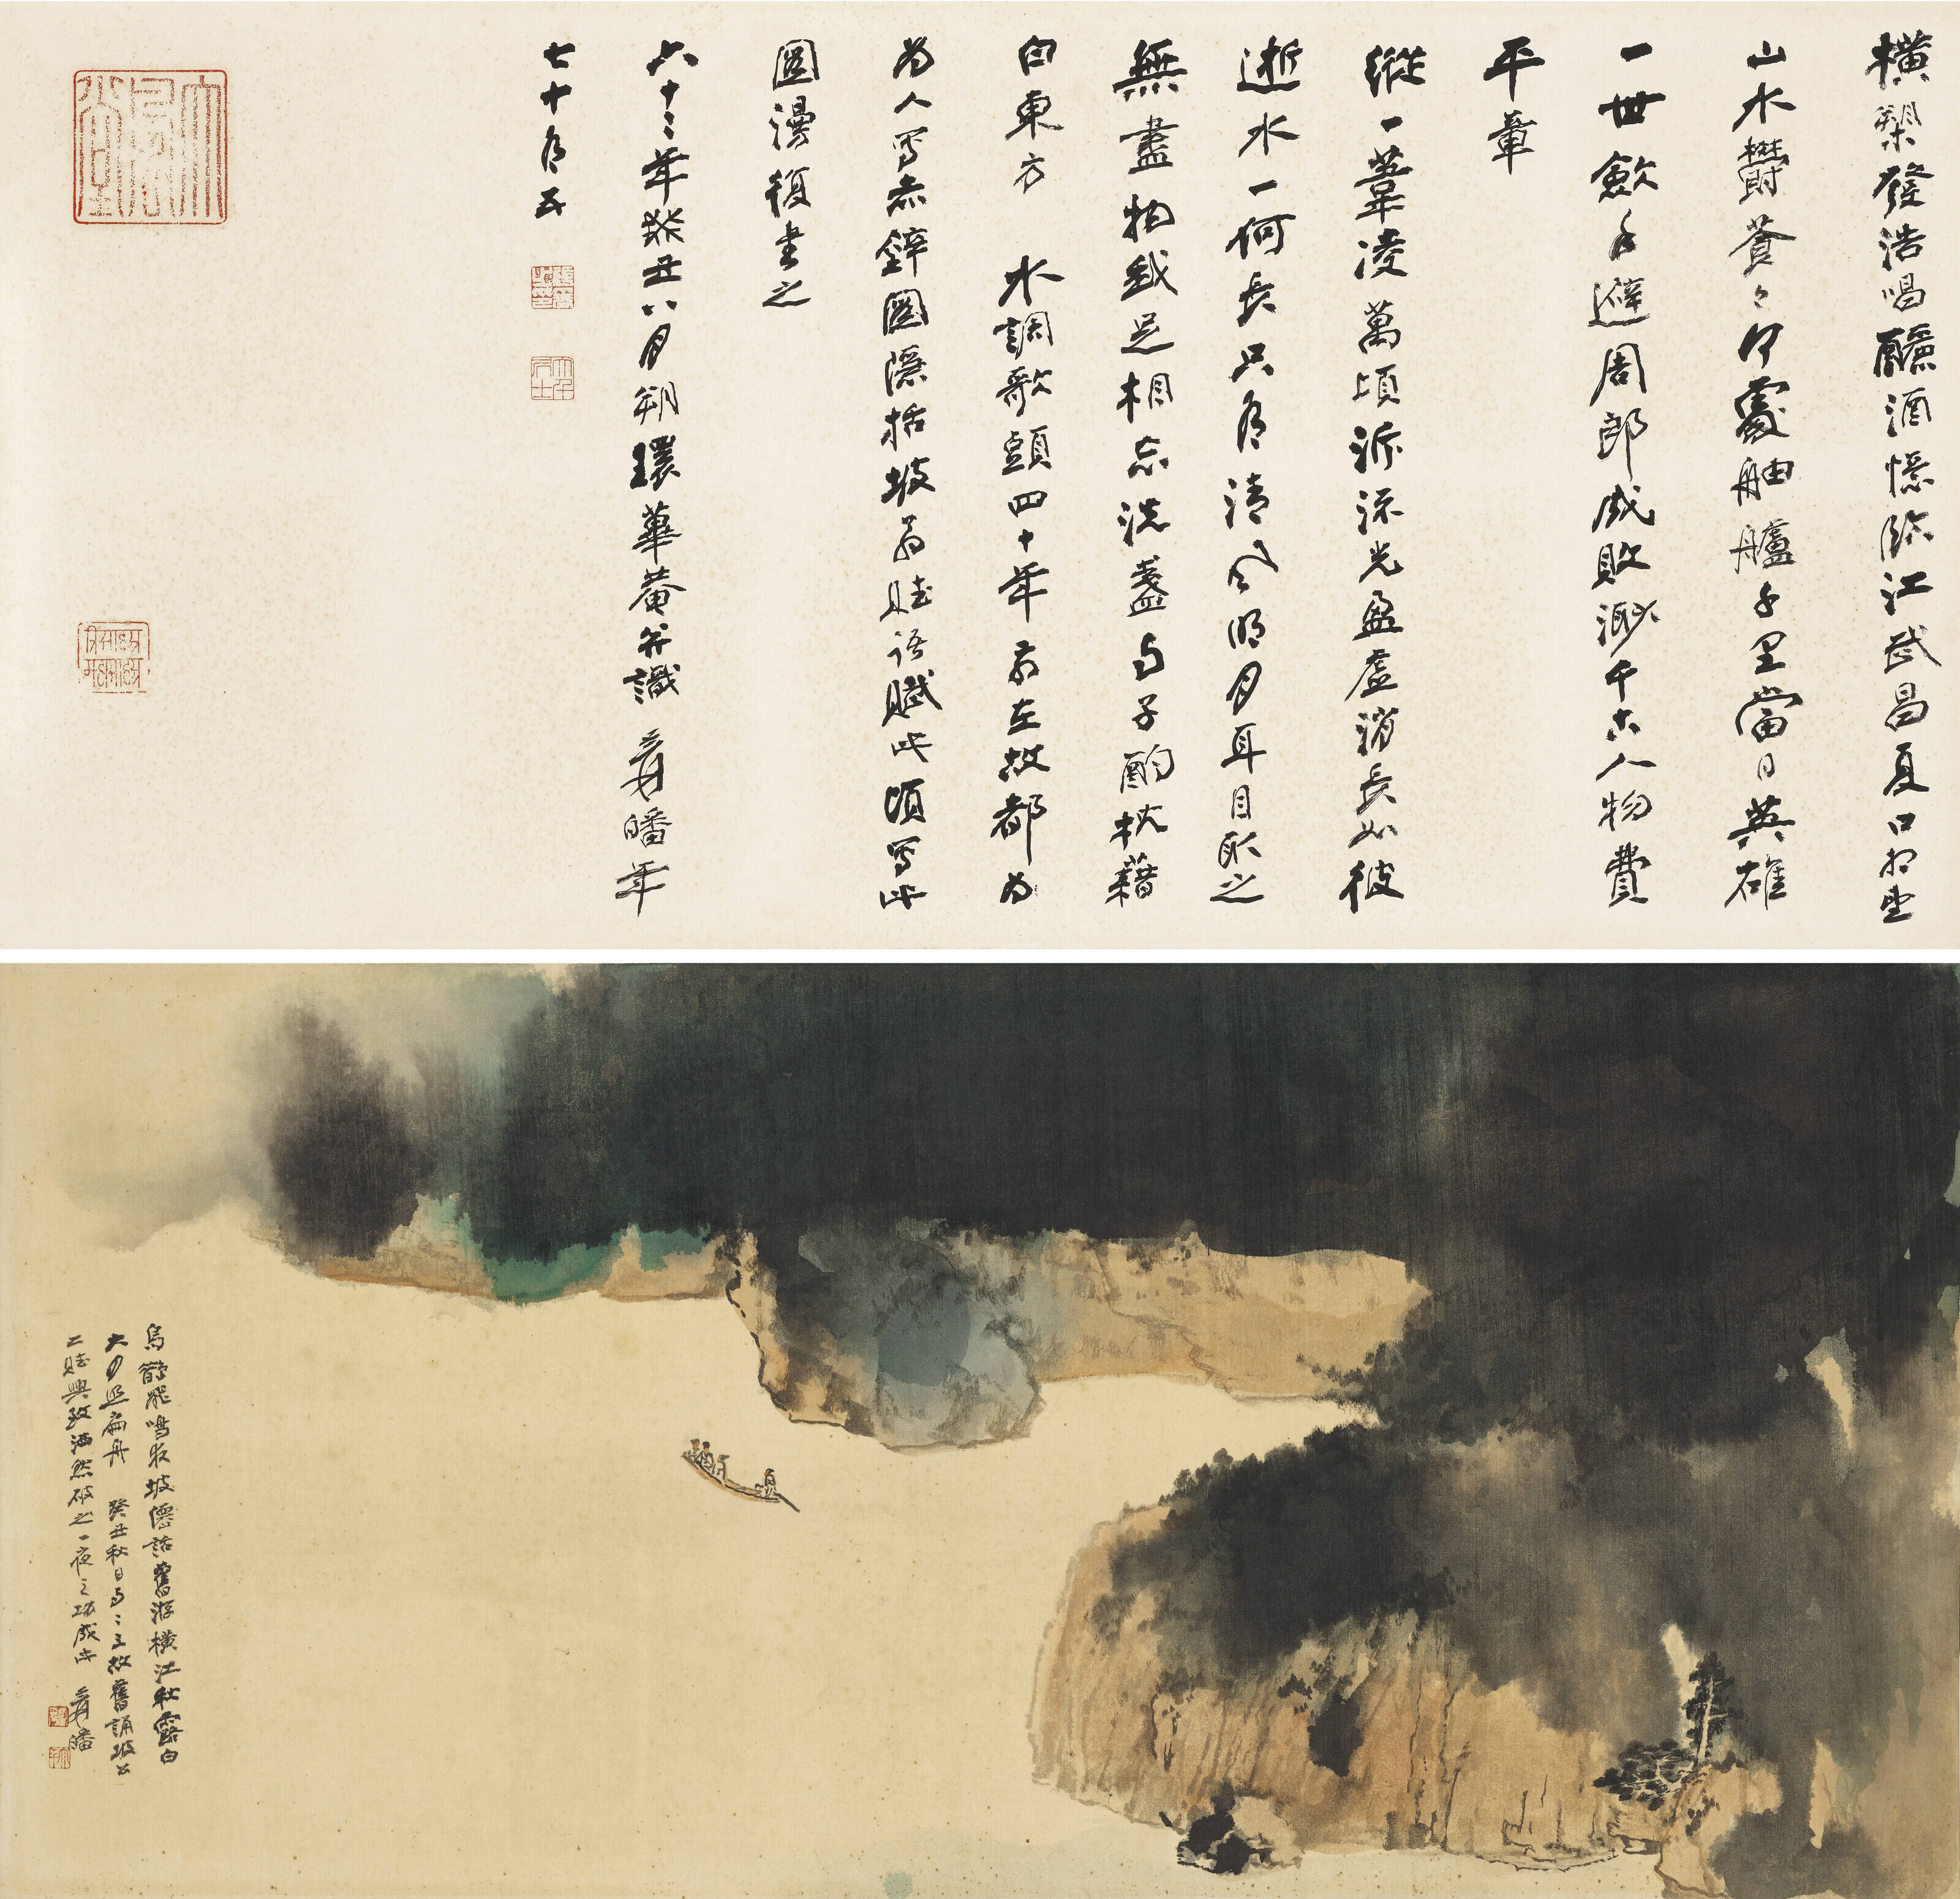 橫槊發浩唱釃酒憶臨江武昌夏口相望
山水鬱蒼〻何處舳艫千里當日英雄
一世歛手避周郎成敗渺千古人物費
平章
縱一葦凌萬頃泝流光盈虛消長如彼
逝水一何長只有清風明月耳目取之
無盡物我足相忘洗盞與子酌枕藉
白東方 水調歌頭四十年前在故都為
為人寫赤壁圖隱括坡翁賦語賦此頃寫此
圖漫復書之
六十二年癸丑八月朔環蓽菴并識 爰皤年
七十有五
張爰之印
大千居士
大風堂
烏鵲飛鳴夜坡僊話舊游橫江秋露白
大月照扁舟 癸丑秋日與二三故舊誦坡公
二賦興致洒然破之一夜之功成此 爰皤